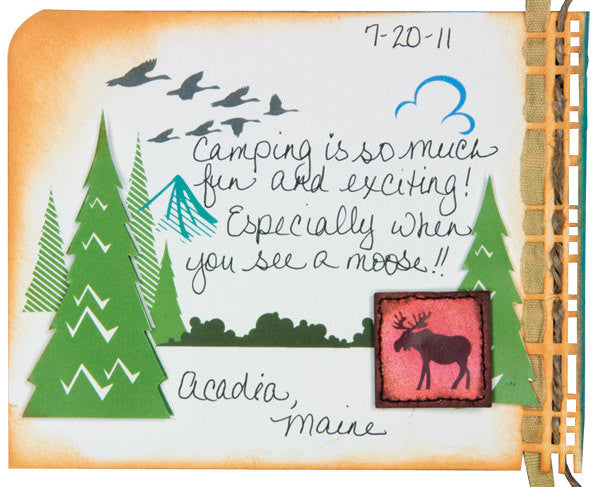 7-20-11
camping is so much
fun and exciting!
Especially when
you see a moose!!
Acadia,
Maine